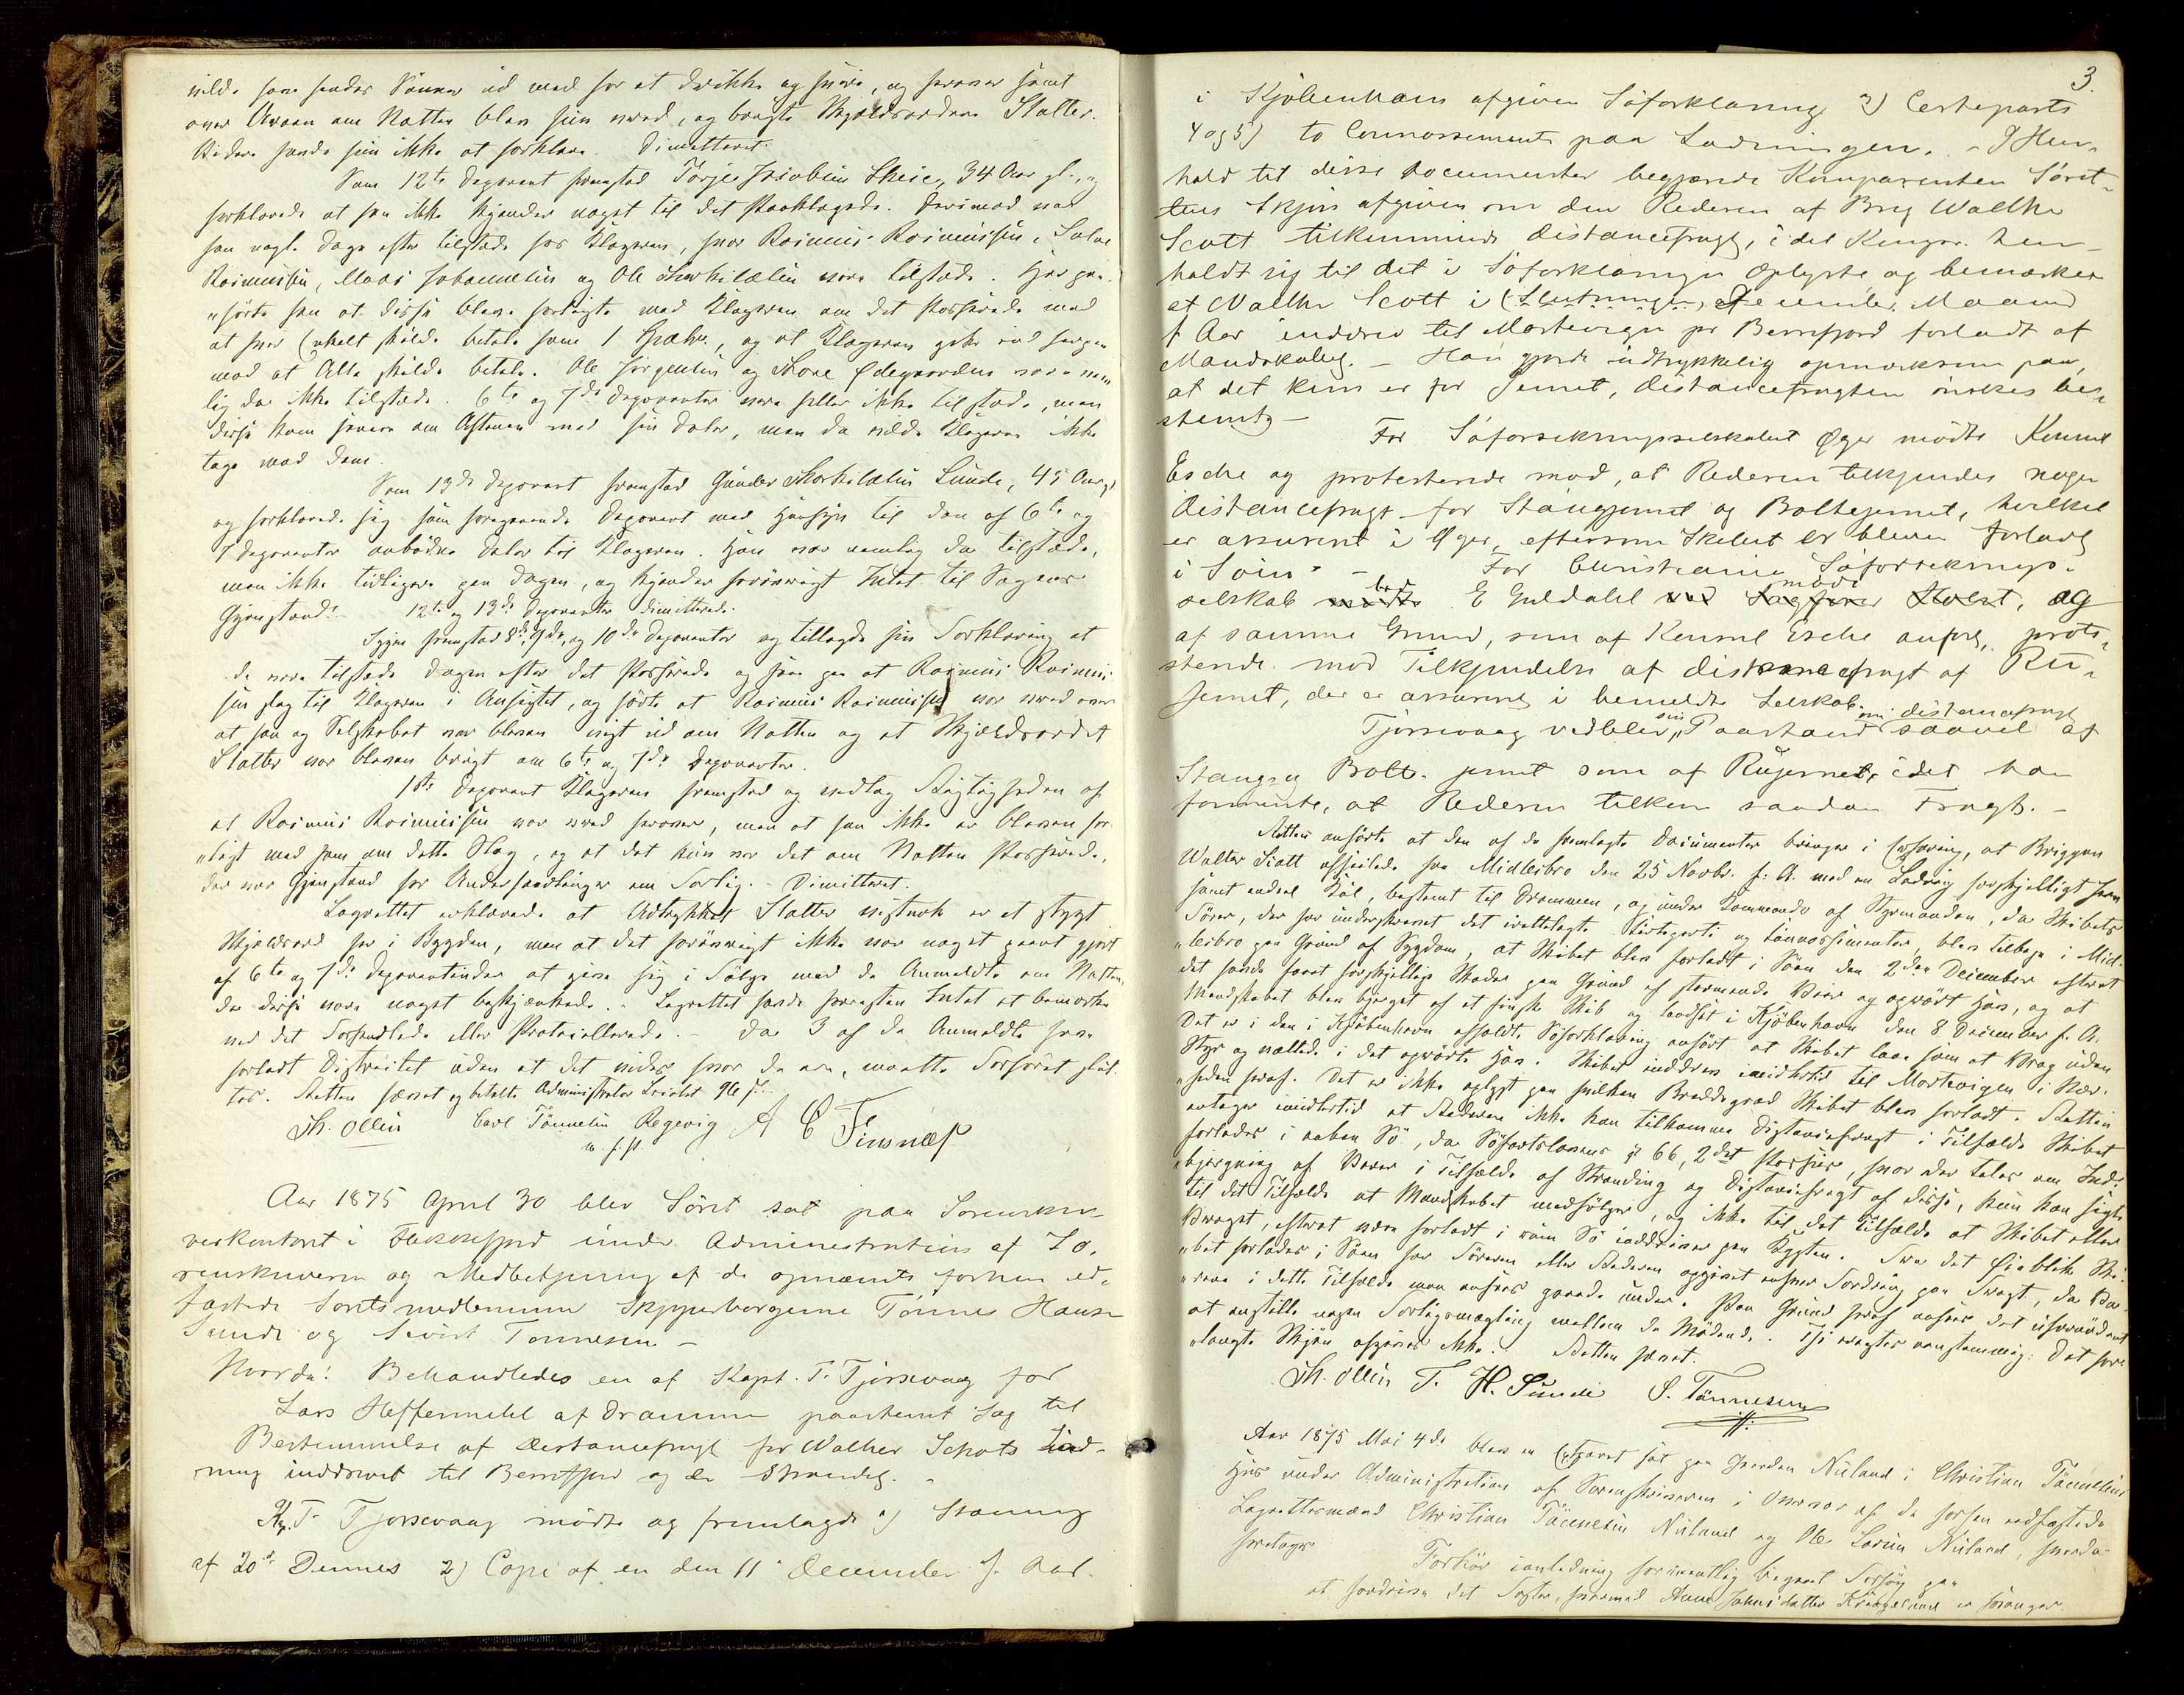 vilde have sendes Sønner ud med for at drikke og svire, og herover samt
over Uroen om Natten blev hun vred, og brugte Skjældsordene Slatter.
Videre havde hun ikke at forklare. Dimitteret.
Som 12te Deponent fremstod Torje Skeie, 34 Aar gl., og
forklarede at han ikke kjender noget til det Paaklagede. Derimod var
han nogle Dage efter tilstede hos Klageren, hvor Rasmus Rasmussen, Salve
Rasmussen, Mads Johannesen og Ole Therkildsen vare tilstede. Her paa¬
„hørte han at disse bleve forligte med Klageren om det Passerede med
at hver Enkelt skulde betale ham 1 Spdlr., og at Klageren gik ind herpaa
mod at Alle skulde betale. Ole Jørgensen og Thore Ødegaarden vare nem¬
lig da ikke tilstede. 6te og 7de Deponenter vare heller ikke tilstede, men
disse kom senere om Aftenen med sin Daler, men da vilde Klageren ikke
tage mod dem.
Som 13de Deponent fremstod Gunder Therkildsen Lunde, 45 Aar gl.
og forklarede sig som foregaaende Deponent med Hensyn til den af 6te og
7 Deponenter anbudne Daler til Klageren. Han var nemlig da tilstede,
men ikke tidligere paa Dagen, og kjender forøvrigt Intet til Sagens
Gjenstand. 12te og 13de Deponenter dimitterede.
Igjen fremstod 8de, 9de og 10de Deponenter og tillagde sin Forklaring at
de vare tilstede Dagen efter det Passerede og saae paa at Rasmus Rasmus¬
sen slog til Klageren i Ansigtet, og hørte at Rasmus Rasmussen var vred over
at han og Selskabet var bleven jagt ud om Natten og at Skjældsordet
Slatter var bleven brugt om 6te og 7de Deponenter.
1ste Deponent Klageren fremstod og vedtog Rigtigheden af
at Rasmus Rasmussen var vred herover, men at han ikke er bleven for¬
„ligt med ham om dette Slag, og at det kun var det om Natten Passerede,
der var Gjenstand for Underhandlinger om Forlig. – Dimitteret.
Lagrettet erklærede at Udtrykket Slatter vistnok er et stygt
Skjældsord her i Bygden, men at det forøvrigt ikke var noget paant gjort
af 6te og 7de Deponentinder at give sig i Følge med de Anmeldte om Natten,
da disse vare noget beskjænkede. – Lagrettet havde forresten Intet at bemærke
ved det Forhandlede eller Protocollerede. – Da 3 af de Anmeldte have
forladt Distriktet uden at det vides hvor de ere, maatte Forhøret slut¬
tes. Retten hævet og betalte Administrator Lrettet 96 s.
Th. Ollin Carl Tønnesen Regevig A C Finsnæs
m. f. P.
Aar 1875 April 30 blev Søret sat paa Sorenskri-
verkontoret i Flekkefjord under Administration af So¬
renskriveren og Medbetjening af de opnævnte forhen ed¬
fæstede Søretsmedlemmer Skipperborgerne Tønnes Hansen
Sunde og Sivert Tønnesen –
Hvorda: Behandledes en af Kapt. T. Tjørsvaag for
Lars Heffermehl af Drammen paastevnt Sag til
Bestemmelse af Distancefragt for Walter Scots Lad¬
ning inddrevet til Berrefjord og der strandet. –
Kp. T. Tjorsvaag mødte og fremlagde 1) Stævning
af 20de Dennes 2) Copi af en den 11 December f. Aar
3.
i Kjøbenhavn afgiven Søforklaring 3) Certeparti
4 og 5) to Connossementer paa Ladningen. – I Hen¬
hold til disse Documenter begjærede Komparenten Søret¬
tens Skjøn afgiven om den Rederen af Brig Walther
Scott tilkommende Distancefragt, idet Kompar. hen¬
holdt sig til det i Søforklaringen Oplyste, og bemærker
at Walther Scott i Slutningen af December Maaned
f Aar inddrev til Mortevigen pr Berrefjord forladt af
Mandskabet. – Han gjorde udtrykkelig opmærksom paa,
at det kun er for Jernet, Distancefragten ønskes be¬
stemt –
For Søforsikringsselskabet Øger mødte Konsul
Esche og protesterede mod, at Rederen tilkjendes nogen
Distancefragt for Stangjernet og Boltejernet, hvilket
er assureret i Øger, eftersom Skibet er bleven forladt
i Søen. – For Christiania Søforsikrings-
selskab mødte E Guldahl ved Sagfører, og
af samme Grund, som af Konsul Esche anført, prote¬
sterede mod Tilkjendelse af Distancefragt af Ru¬
jernet, der er assureret i bemeldte Selskab.
Tjørsvaag vedblev sin Paastand om Distancefragt saavel af
Stang og Bolte jernet som af Rujernet, idet han
formente, at Rederen tilkom saadan Fragt. –
Retten anførte at den af de fremlagte Documenter bringes i Erfaring, at Briggen
Walter Scott afseilede fra Midlesbro den 25 Novbr. f. A. med en Ladning forskjelligt Jern
samt endeel Kul, bestemt til Drammen, og under Kommando af Styrmanden, da Skibets
Fører, der har underskrevet det ivettelagte Certeparti og Connossementer, blev tilbage i Mid¬
„lesbro paa Grund af Sygdom, at Skibet blev forladt i Søen den 2den December efterat
det havde faaet forskjellige Skader paa Grund af stormende Veir og oprørt Hav, og at
Mandskabet blev bjerget af et finsk Skib og landsat i Kjøbenhavn den 8 December f. A.
Det er i den i Kjøbenhavn afholdte Søforklaring anført at Skibet laae som et Vrag uden
Styr og væltede i det oprørte Hav. Skibet inddrev imidlertid til Mortevigen i Nær¬
„heden heraf. Det er ikke oplyst paa hvilken Breddegrad Skibet blev forladt. Retten
antager imidlertid at Rederen ikke kan tilkomme Distancefragt i Tilfælde Skibet
forlades i aaben Sø, da Søfartslovens § 66, 2det Passus, hvor der tales om Ind¬
„bjergning af Varer i Tilfælde af Stranding og Distancefragt af disse, kun kan sigte
til det Tilfælde at Mandskabet medfølger, og ikke til det Tilfælde at Skibet eller
Vraget, efterat være forladt i rum Sø inddriver paa Kysten. Fra det Øieblik Ski¬
„bet forlades i Søen har Føreren eller Rederen opgivet enhver Fordring paa Fragt, da Va¬
„rerne i dette Tilfælde maa ansees gaaede under. Paa Grund heraf ansees det ufornødent
at anstille nogen Forligsmægling mellem de Mødende. Thi eragtes eenstemmig: Det for¬
„langte Skjøn afgives ikke. Retten hævet.
Th. Ollin T. H. Sunde S. Tønnesen
Aar 1875 Mai 4de blev en Extraret sat paa Gaarden Niland i Christian Tønnesens
Huus under Administration af Sorenskriveren i Overvær af de forhen edfæstede
Lagrettesmænd Christian Tønnesen Niland og Ole Larsen Niland, hvorda
foretoges
Forhør i anledning formentlig begaaet Forsøg paa
at fordrive det Foster, hvormed Anne Johnsdatter er svanger.